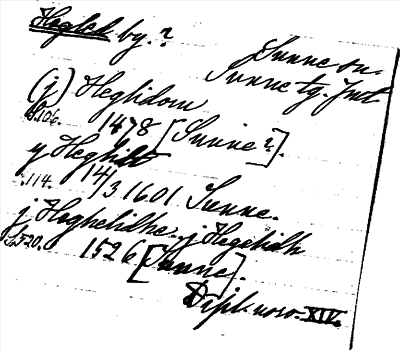 Heglek by.?
Sunne sn.
Sunne tg. Jmt.
(j) Heglidom
S.106. 1478 [Sunne?].
y Heghilt
S.114. 14/3 1601 Sunne.
j Heghelilhe. j Hegelidh
S.320. 1526 [Sunne].
Dipl. norv. XIV.